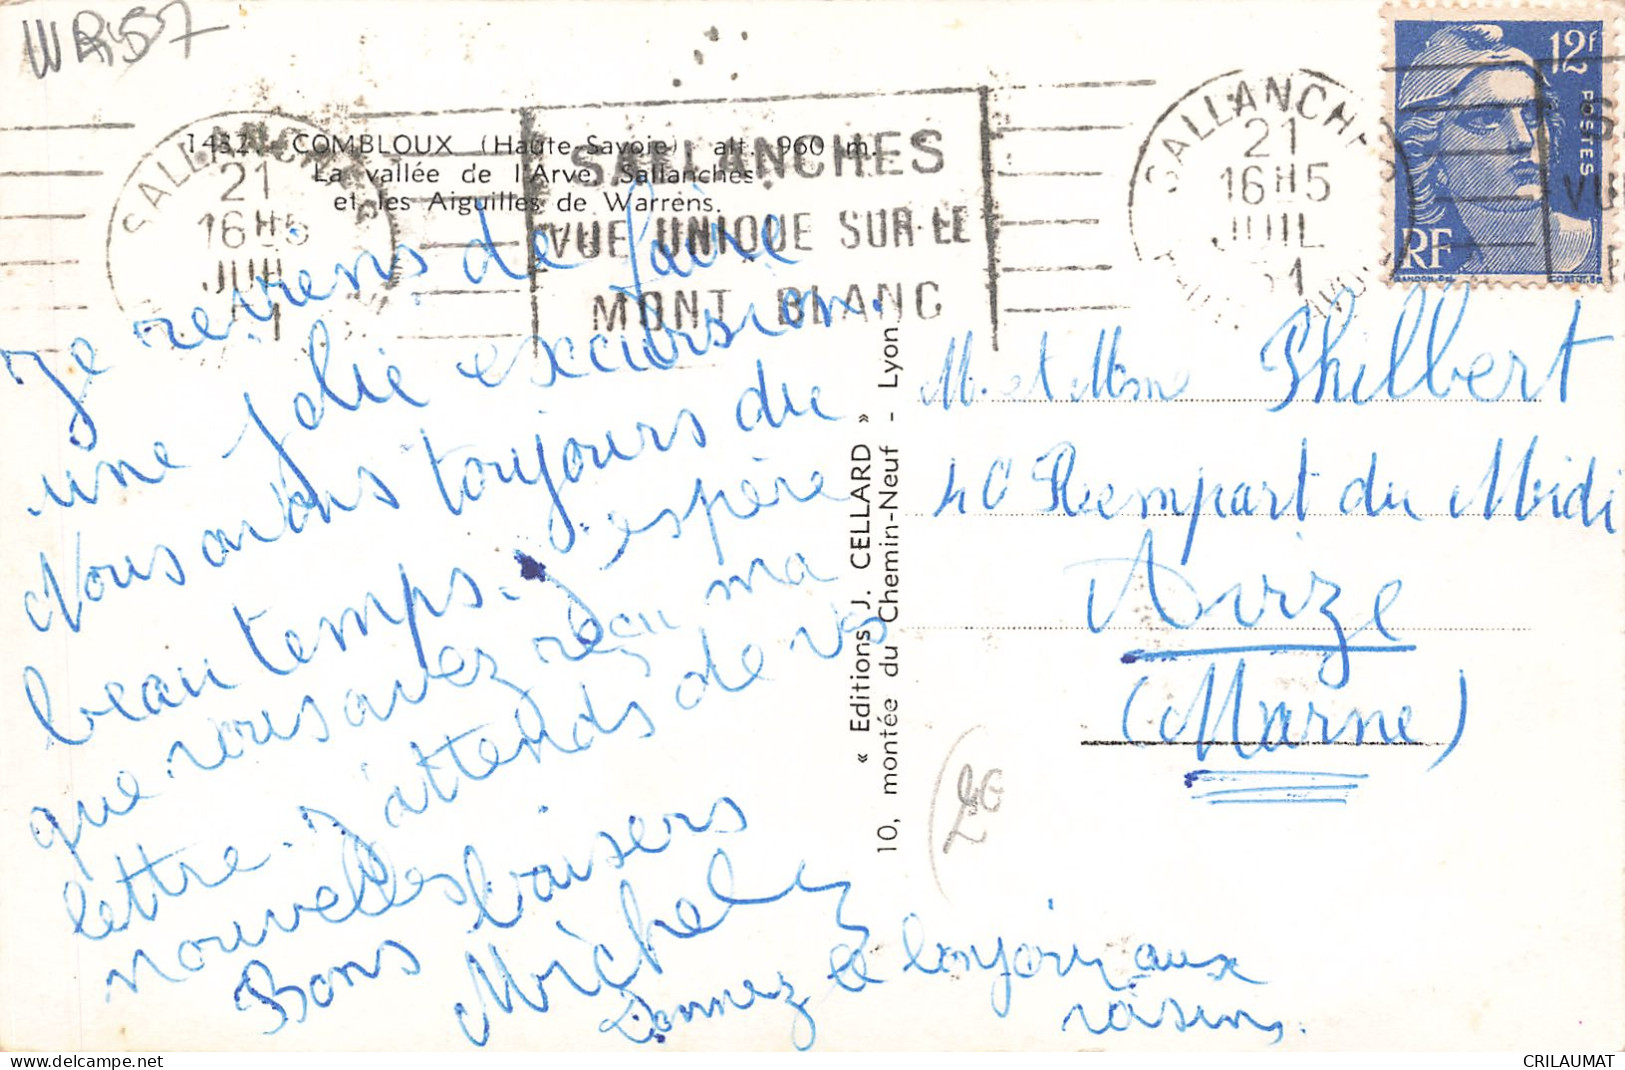 WR157
14321 - COMBLOUX (Haute-Savoie) alt. 960 m.
La vallée de l'Arve, Sallanches
et les Aiguilles de Warrens.
SALLANCHES
21
16H15
JUIL
SALLANCHES
VUE UNIQUE SUR LE
MONT BLANC
SALLANCHES
21
16H15
JUIL
51
12F
POSTES
RF
Je reviens de faire
une jolie excursion.
Nous avons toujours du
beau temps. J'espère
que vous avez reçu ma
lettre. J'attends de vos
nouvelles
Bons baisers
Michel
Donnez le bonjour aux
voisins.
« Editions J. CELLARD »
10, montée du Chemin-Neuf - Lyon
M. et Mme Philbert
40 Rempart du Midi
Avize
(Marne)
CRILAUMAT